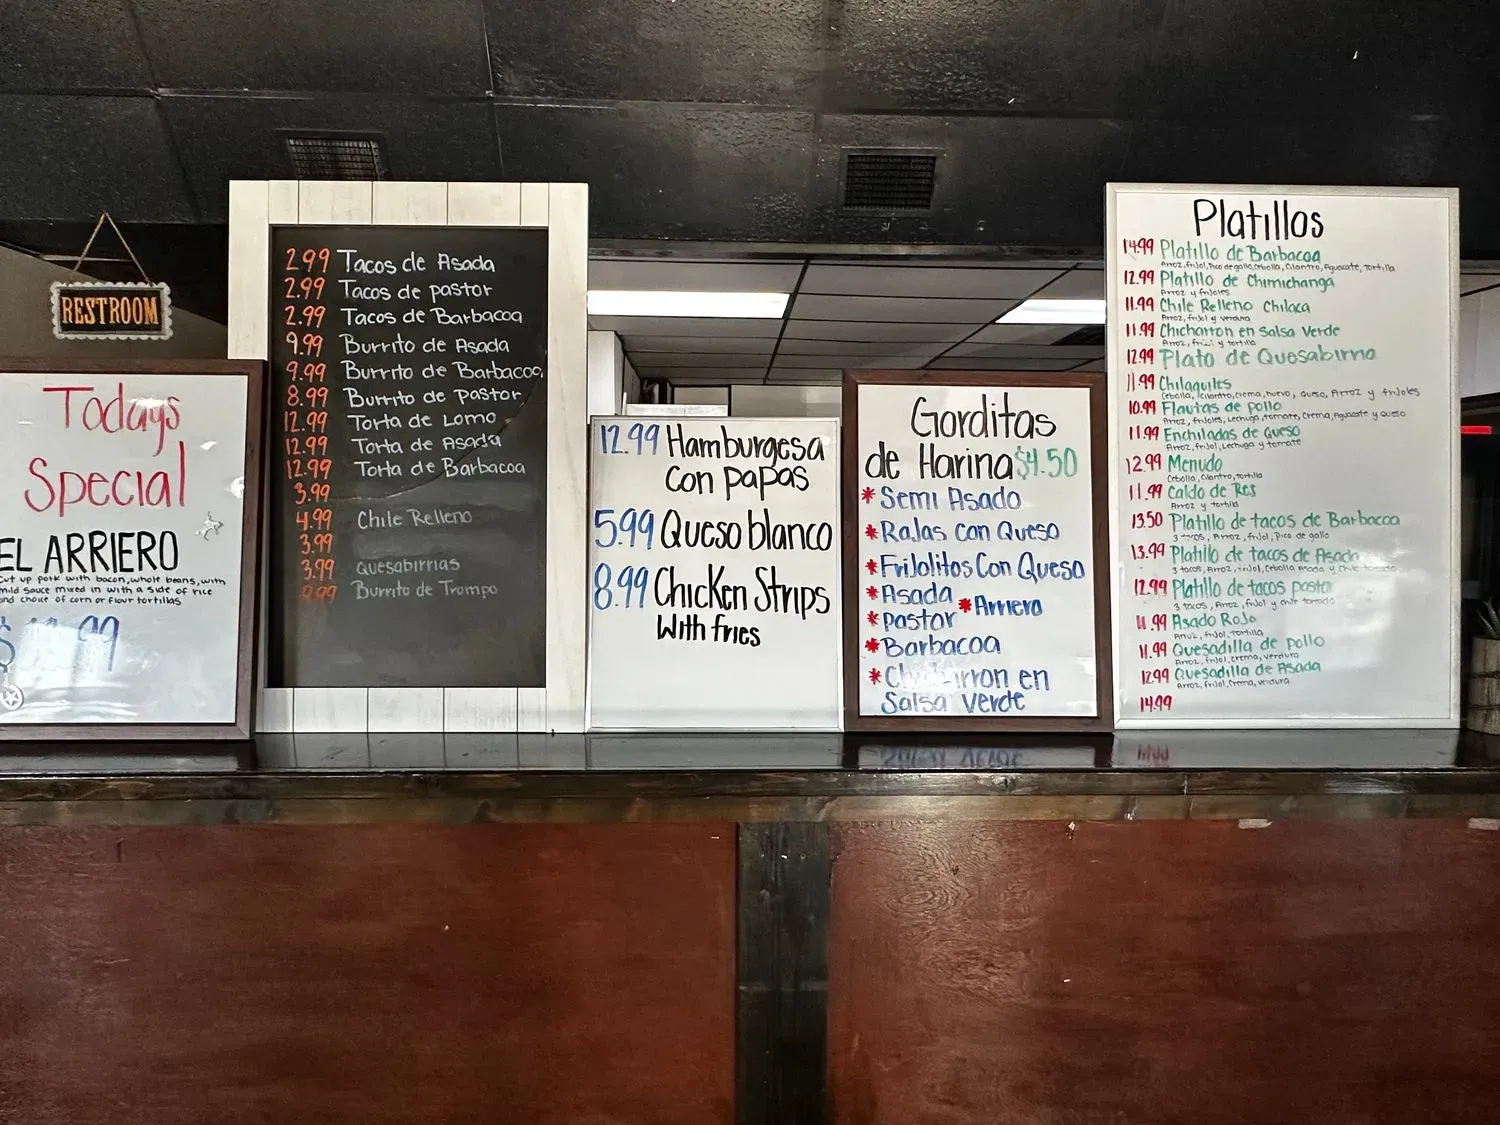 RESTROOM
Todays
Special
EL ARRIERO
cut up pork with bacon, whole beans, with
mild sauce mixed in with a side of rice
and choice of corn or flour tortillas
2.99 Tacos de Asada
2.99 Tacos de pastor
2.99 Tacos de Barbacoa
9.99 Burrito de Asada
9.99 Burrito de Barbacoa
8.99 Burrito de Pastor
12.99 Torta de Lomo
12.99 Torta de Asada
12.99 Torta de Barbacoa
3.99
4.99 Chile Relleno
3.99
3.99 Quesabirrias
Burrito de Trompo
12.99 Hamburgesa
con papas
5.99 Queso blanco
8.99 Chicken Strips
With fries
Gorditas
de Harina $4.50
* Semi Asado
* Rajas con Queso
* Frijolitos Con Queso
* Asada
* Arriero
* pastor
* Barbacoa
* Chicharron en
Salsa Verde
Platillos
14.99 Platillo de Barbacoa
Arroz, frijol, Pico de gallo, Cebolla, Cilantro, Aguacate, Tortilla
12.99 Platillo de Chimichanga
Arroz y frijoles
11.99 Chile Relleno Chilaca
Arroz, frijol y verdura
11.99 Chicharron en Salsa Verde
Arroz, frijol y tortilla
12.99 Plato de Quesabirria
11.99 Chilaquiles
Cebolla, cilantro, crema, huevo, queso, Arroz y frijoles
10.99 Flautas de pollo
Arroz, frijoles, Lechuga, tomate, Crema, Aguacate y queso
11.99 Enchiladas de Queso
Arroz, frijol, Lechuga y tomate
12.99 Menudo
Cebolla, Cilantro, tortilla
11.99 Caldo de Res
Arroz y tortilla
13.50 Platillo de tacos de Barbacoa
3 tacos, Arroz, frijol, Pico de gallo
13.99 Platillo de tacos de Asada
3 tacos, Arroz, frijol, Cebolla asada y Chile toreado
12.99 Platillo de tacos pastor
3 tacos, Arroz, frijol y chile toreado
11.99 Asado Rojo
Arroz, frijol, tortilla
11.99 Quesadilla de pollo
Arroz, frijol, crema, verdura
12.99 Quesadilla de Asada
Arroz, frijol, crema, verdura
14.99